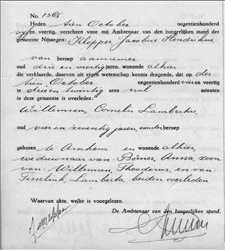 No. 1565
Heden tien October negentienhonderd
vijf en veertig, verscheen voor mij Ambtenaar van den burgerlijken stand der
gemeente Nijmegen: Klepper Jacobus Hendrikus
van beroep aannemer
oud drie en veertig jaren, wonende alhier
die verklaarde, daarvan uit eigen wetenschap kennis dragende, dat op der-
tien October negentienhonderd vijf en veertig
te drie en twintig uren nul minuten
in deze gemeente is overleden:
Willemsen, Cornelis Lambertus
oud vier en zeventig jaren, zonder beroep
geboren te Arnhem en wonende alhier
weduwnaar van Bömer, Anna, zoon
van Willemsen, Theodorus, en van
Lamberta beiden overleden
Waarvan akte, welke is voorgelezen.
De Ambtenaar van den burgerlijken stand,